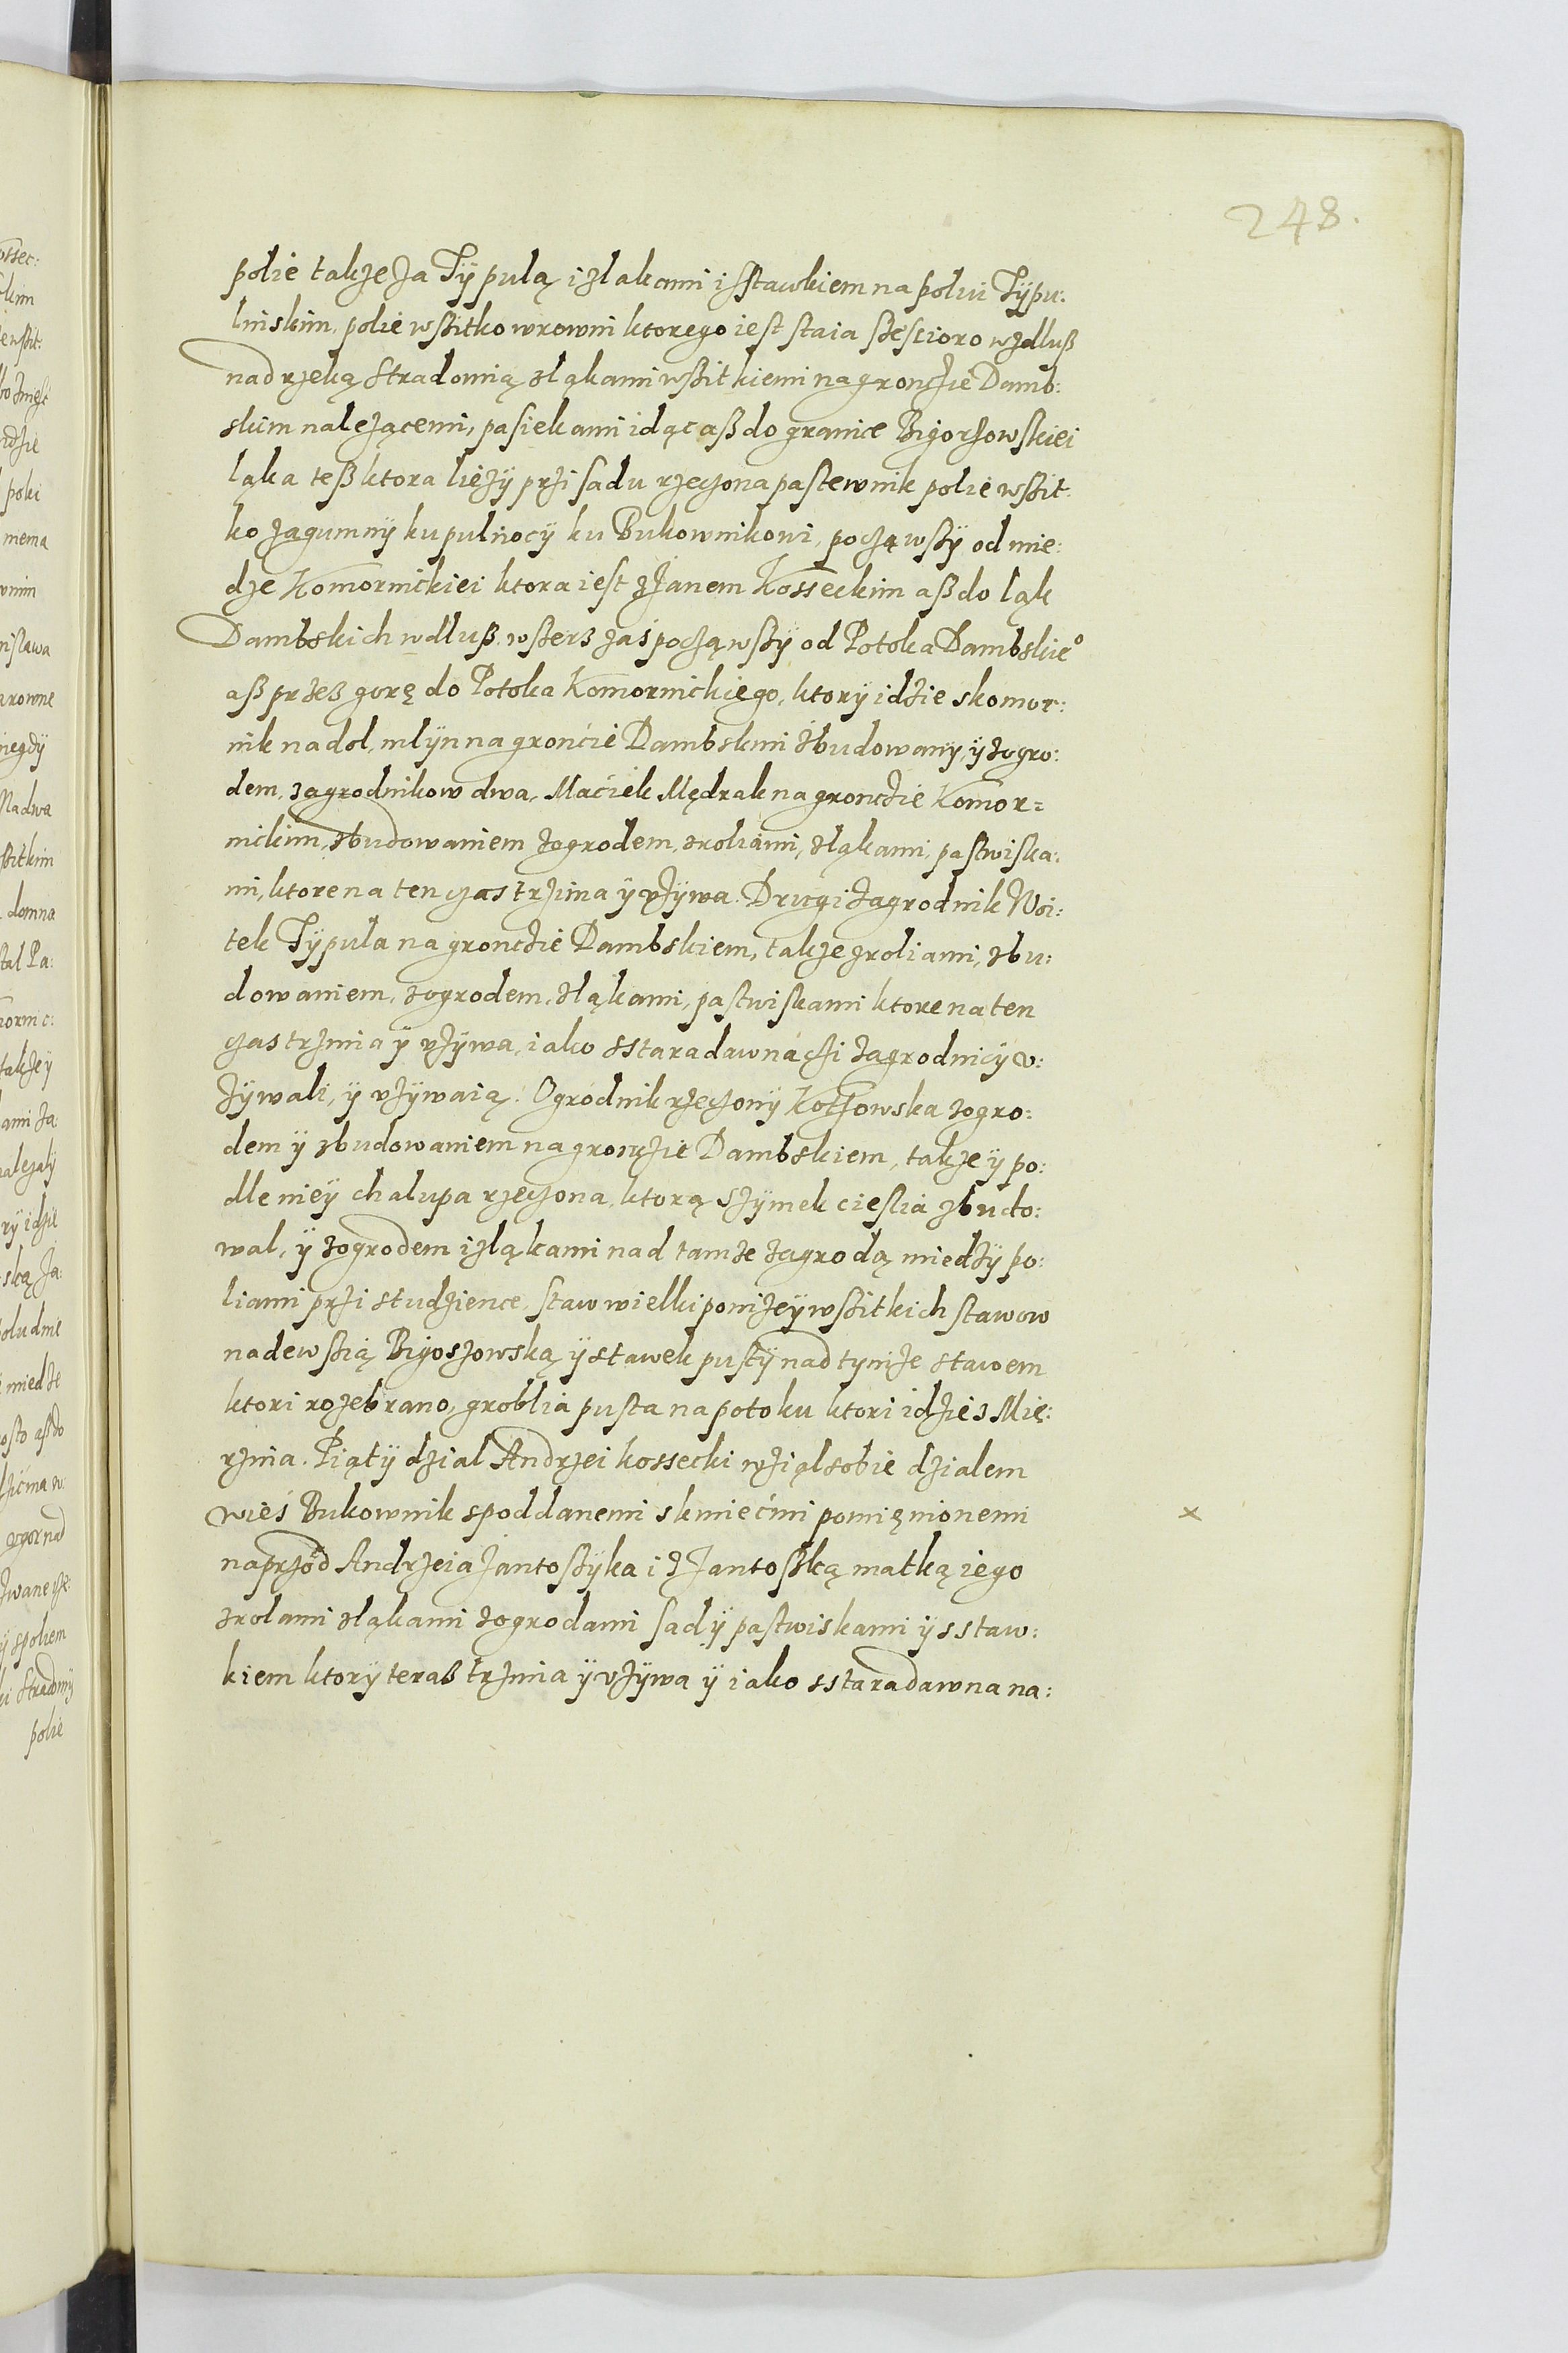 248.
polie także za Tÿpulą i złakami i sstawkiem na poliu Tÿpu:
lniskim, polie wßitko wrowni ktorego iest staia sześcioro wzdluß
nad rzeką Stradomią złąkami wßitkiemi na gronczie Damb:
skim należącemi, pasiekami idąc aß do granice Bigorzowskiei
ląka teß ktora lieżÿ przi sadu rzeczona pastewnik polie wßit:
ko zagumnÿ ku pulnocÿ ku Bukownikowi, począwßÿ od mie:
dze Komornickiei ktora iest z Janem Kosseckim aß do ląk
Dambskich wdluß wßerz zaś począwßÿ od Potoka Dambskie°
aß przez gorę do Potoka Komornickiego, ktorÿ idzie skomor:
nik na dol, mlÿn na gronćie Dambskim zbudowanÿ, ÿ zogro:
dem, zagrodnikow dwa, Maćiek Mędrak na gronczie Komor=
nickim, zbudowaniem zogrodem, zroliami, złąkami, pastwiska:
mi, ktore na ten czas trzima ÿ vżÿwa. Drugi zagrodnik Woi:
tek Tÿpula na gronczie Dambskiem, także zroliami, zbu:
dowaniem, zogrodem, złąkami, pastwiskami ktore na ten
czas trzima ÿ vżÿwa, iako sstaradawna czi zagrodnicÿ v:
żÿwali, ÿ vżÿwaią. Ogrodnik rzeczonÿ Kotzowska zogro:
dem ÿ zbudowaniem na gronczie Dambskiem, także ÿ po:
dle nieÿ chalupa rzeczona, ktorą Szÿmek cieslia zbudo:
wal, ÿ zogrodem i złąkami nad tamże zagrodą miedzÿ po:
liami przi studzience, staw wielki poniżeÿ wßitkich stawow
nade wsią Bigoszowską ÿ stawek pustÿ nad tymże stawem
ktori rozebrano, groblia pusta na potoku ktori idzie z Mie:
rznia. Piątÿ dzial Andrzei Kossecki wziąl sobie dzialem
wieś Bukownik spoddanemi skmiećmi pomięnionemi
naprzod Andrzeia Jantoßÿka i z Jantoßką matką iego
zrolami złąkami zogrodami sadÿ pastwiskami ÿ sstaw:
kiem ktorÿ teraß trzima ÿ vżÿwa ÿ iako sstaradawna na:
x